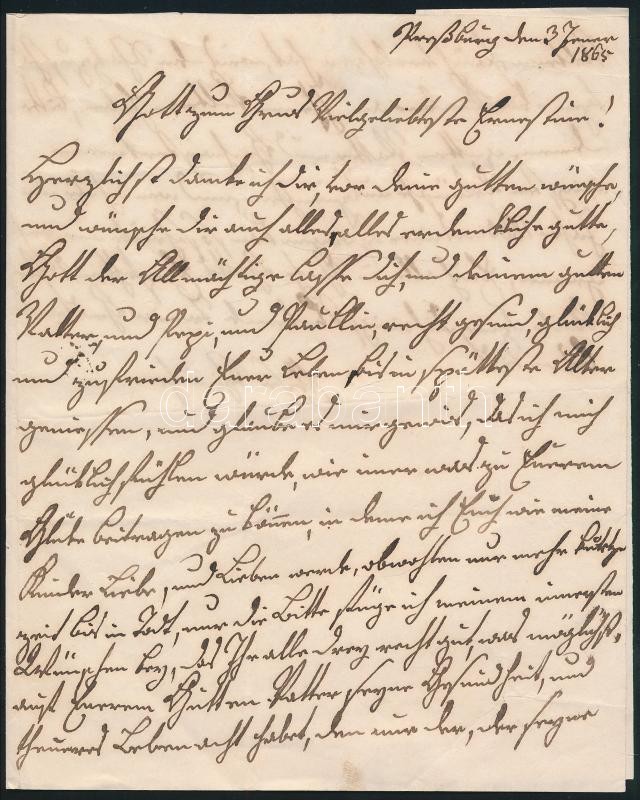 Preßburg den 3 Jener
1865
Gott zum Grus Vielgeliebteste Ernestine!
Herzlichst danke ich dir, vor deine gutten wünsche,
und wünsche dir auch alles, alles erdenkliche gutte,
Gott der Allmächtige lasse dich, und deinem gutten
Vatter, und Pepi, und Paullin, recht gesund, glüklich
und zufrieden Euer Leben, bis in spätteste Alter
geniessen, und glaube es nur gewis, das ich mich
glüklich fühlen würde, wie imer was zu Euerem
Glüke beitragen zu können, in deme ich Euch wie meine
Kinder Liebe, und Lieben werde, obwohlen nur mehr kurtze
zeit bis in Todt, nur die Bitte füge ich meinem inersten
Wünschen bey, das Ihr alle drey recht gut, was möglichst,
auf Euerem Gutten Vatter seyne Gesundheit, und
theueres Leben acht habet, den nur der, der seyne
darabanth